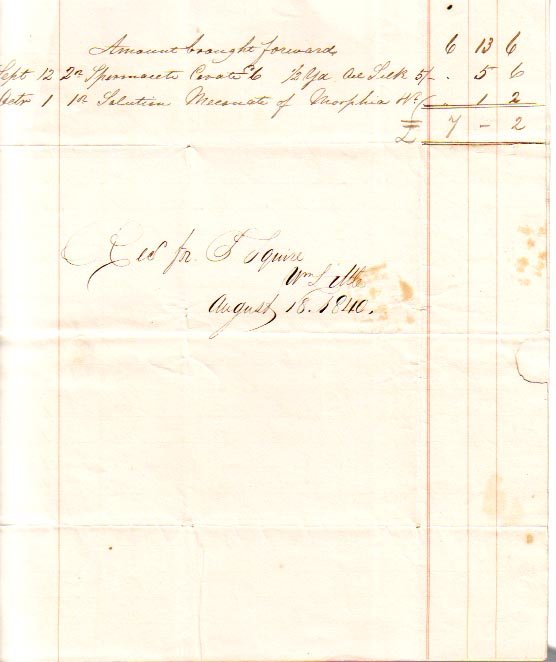 Amount brought forward 6 13 6
Sept 12 2oz Spermacete Cerate 6 1/2 Yd Oil Silk 5/- . 5 6
Octr 1 1oz Solution Meconate of Morphia . 1 2
£ 7 - 2
Recd for P Squire
Wm
August 18. 1840.